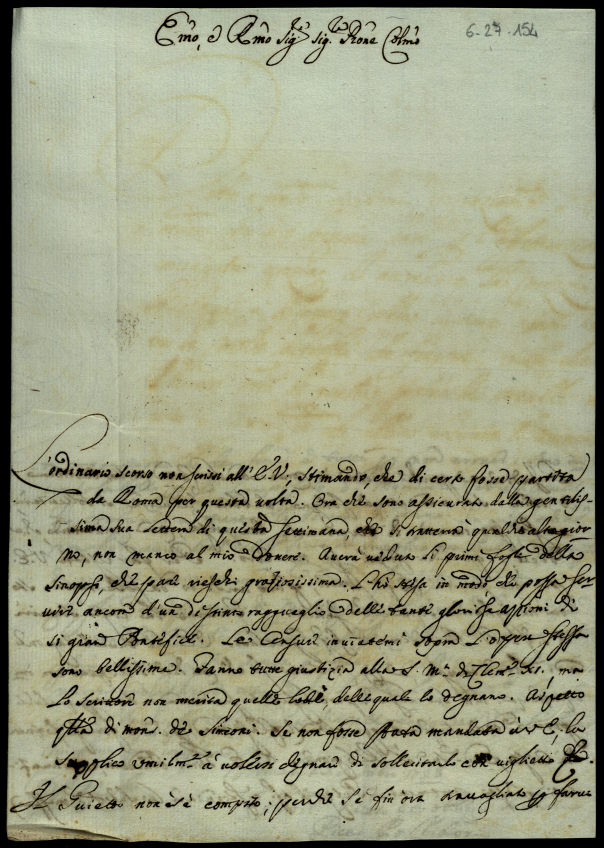 6-27-154
Emo, e Rmo Sigre, sigre Prone Colmo
L'ordinario scorso non scrissi all'E.V., stimando, che di certo fosse partita
da Roma per questa volta. Ora che sono assicurato dalla gentilis-
sima sua lettera di questa settimana, che si tratterrà qualche altro gior
no, non manco al mio dovere. Averà veduto li primi fogli della
sinopsi, che spero rieschi graziosissima. L'hò stesa in modo, che possa ser
vire ancora d'un distinto ragguaglio delle tante gloriose azzioni di
si gran Pontefice. Le Censure inviatemi sopra l'opera stessa
sono bellissime. Fanno tutte giustizia alla S. Ma. di Clemte XI, ma
lo scrittore non merita quelle lodi, delle quale lo degnano. Aspetto
qlla di mons. de Simeoni. Se non fosse stata mandata à V.E., la
supplico umilmte à volersi degnare di sollecitarlo con viglietto
Il Guietto non s'è compito, perche si è fin'ora travagliato p farne